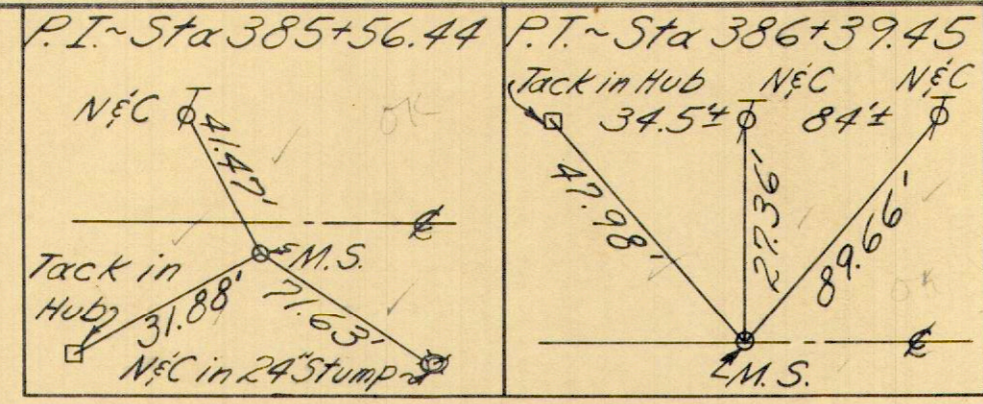 P.I.~Sta 385+56.44
N&C
41.47'
OK
℄
M.S.
Tack in
Hub
31.88'
71.63'
N&C in 24" Stump
P.T.~Sta 386+39.45
Tack in Hub
N&C
N&C
34.5'±
84'±
47.98'
27.36'
89.66'
OK
℄
M.S.